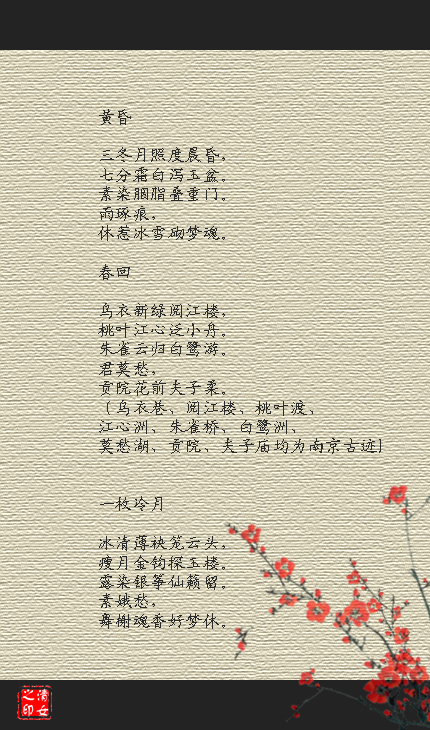 黄昏
三冬月照度晨昏，
七分霜白泻玉盆。
素染胭脂叠重门。
雨琢痕，
休惹冰雪砌梦魂。
春回
乌衣新绿阅江楼，
桃叶江心泛小舟。
朱雀云归白鹭游。
君莫愁，
贡院花前夫子柔。
（乌衣巷、阅江楼、桃叶渡、
江心洲、朱雀桥、白鹭洲、
莫愁湖、贡院、夫子庙均为南京古迹]
一枚冷月
冰清薄袂笼云头，
瘦月金钩探玉楼。
露染银筝仙籁留。
素娥愁，
舞榭魂香好梦休。
清女之印